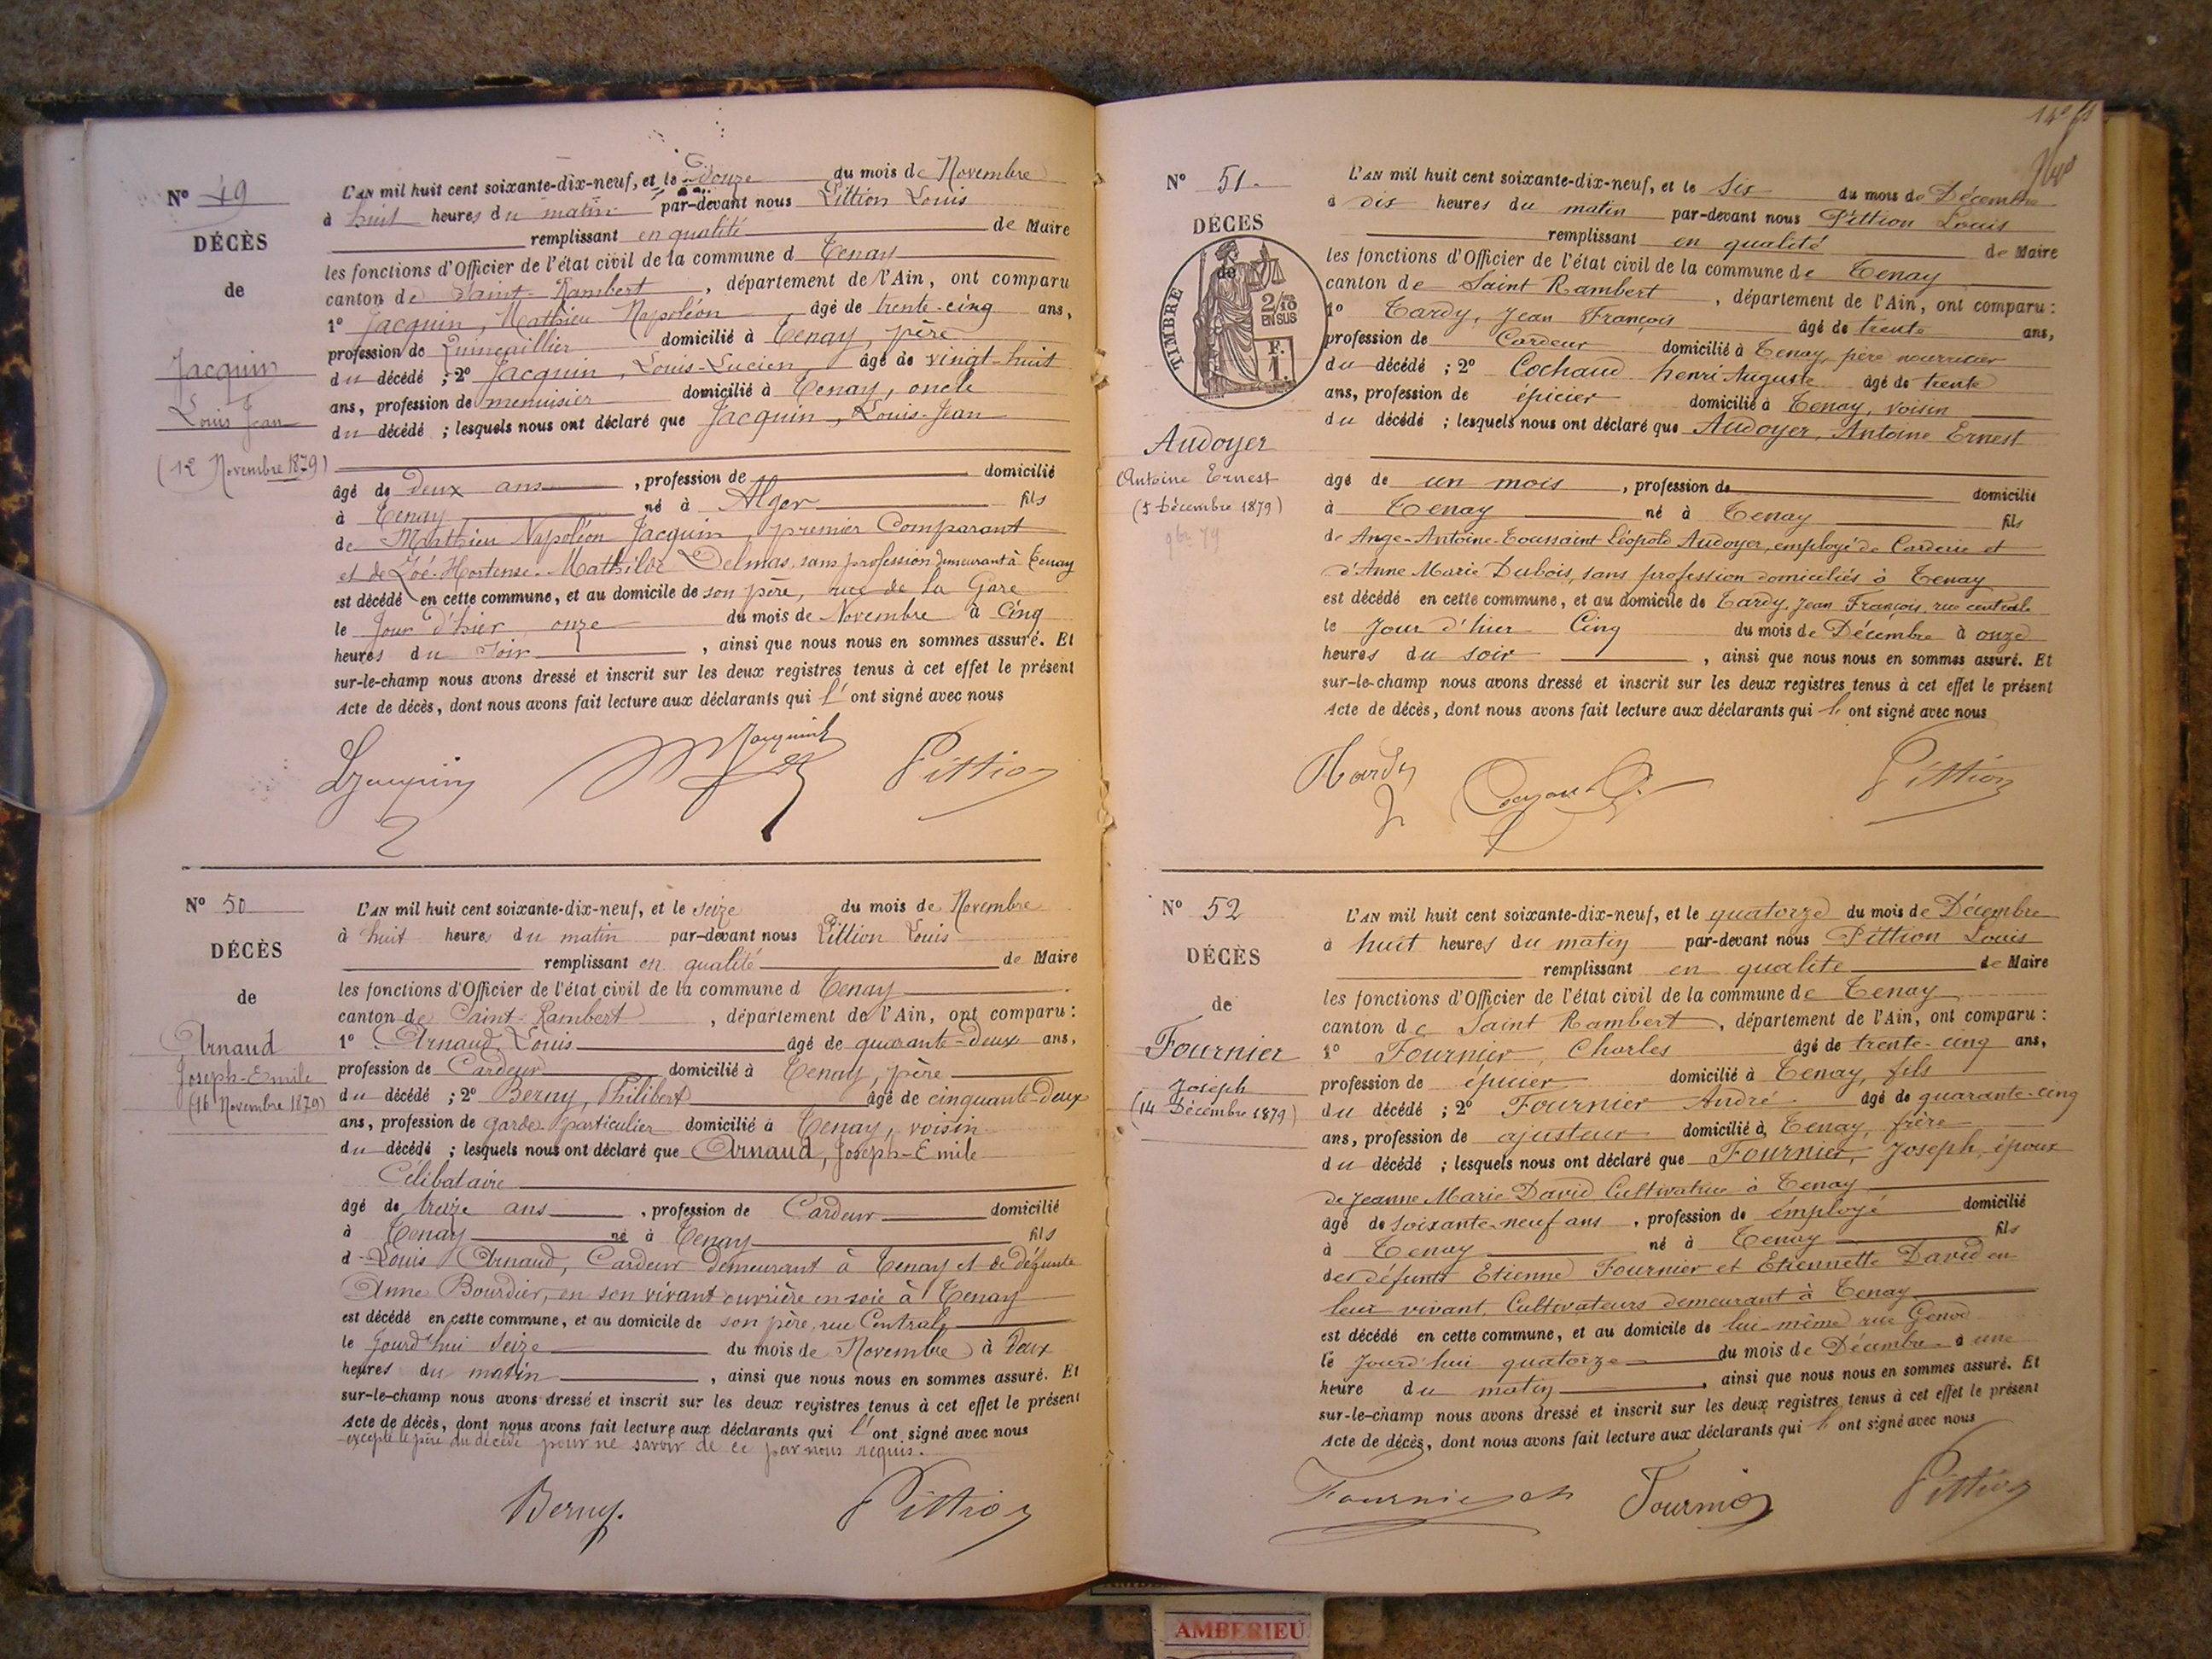 Nº 49
DÉCÈS
de
Jacquin
Louis Jean
(12 Novembre 1879)
L'AN mil huit cent soixante-dix-neuf, et le Douze du mois de Novembre
à huit heures du matin par-devant nous Pittion Louis
remplissant en qualité de Maire
les fonctions d'Officier de l'état civil de la commune d Tenay
canton de Saint-Rambert, département de l'Ain, ont comparu
1º Jacquin, Mathieu Napoléon, âgé de trente-cinq ans,
profession de Quincaillier domicilié à Tenay, père
du décédé ; 2º Jacquin, Louis-Lucien, âgé de vingt-huit
ans, profession de menuisier domicilié à Tenay, oncle
du décédé ; lesquels nous ont déclaré que Jacquin, Louis-Jean
âgé de deux ans, profession de domicilié
à Tenay né à Alger fils
de Mathieu Napoléon Jacquin, premier Comparant
et de Zoé-Hortense-Mathilde Delmas, sans profession demeurant à Tenay
est décédé en cette commune, et au domicile de son père, rue de la Gare
le Jour d'hier onze du mois de Novembre à Cinq
heures du soir, ainsi que nous nous en sommes assuré. Et
sur-le-champ nous avons dressé et inscrit sur les deux registres tenus à cet effet le présent
Acte de décès, dont nous avons fait lecture aux déclarants qui l'ont signé avec nous
Jacquin
Pittion
Nº 50
DÉCÈS
de
Arnaud
Joseph-Emile
(16 Novembre 1879)
L'AN mil huit cent soixante-dix-neuf, et le seize du mois de Novembre
à huit heures du matin par-devant nous Pittion Louis
remplissant en qualité de Maire
les fonctions d'Officier de l'état civil de la commune d Tenay
canton de Saint-Rambert, département de l'Ain, ont comparu :
1º Arnaud Louis âgé de quarante-deux ans,
profession de Cardeur domicilié à Tenay, père
du décédé ; 2º Berny, Philibert âgé de cinquante-deux
ans, profession de garde particulier domicilié à Tenay, voisin
du décédé ; lesquels nous ont déclaré que Arnaud, Joseph-Emile
Célibataire
âgé de treize ans, profession de Cardeur domicilié
à Tenay né à Tenay fils
d Louis Arnaud, Cardeur demeurant à Tenay et de défunte
Anne Bourdier, en son vivant ouvrière en soie à Tenay
est décédé en cette commune, et au domicile de son père, rue Centrale
le Jourd'hui seize du mois de Novembre à deux
heures du matin, ainsi que nous nous en sommes assuré. Et
sur-le-champ nous avons dressé et inscrit sur les deux registres tenus à cet effet le présent
Acte de décès, dont nous avons fait lecture aux déclarants qui l'ont signé avec nous
excepté le père du décédé pour ne savoir de ce par nous requis.
Berny.
Pittion
Nº 51.
DÉCES
de
TIMBRE
2/10 EN SUS
F. 1.
Audoyer
Antoine Ernest
(5 Décembre 1879)
L'AN mil huit cent soixante-dix-neuf, et le Six du mois de Décembre
à dix heures du matin par-devant nous Pittion Louis
remplissant en qualité de Maire
les fonctions d'Officier de l'état civil de la commune de Tenay
canton de Saint Rambert, département de l'Ain, ont comparu :
1º Tardy, Jean François âgé de trente ans,
profession de Cardeur domicilié à Tenay, père nourricier
du décédé ; 2º Cochaud henri Auguste âgé de trente
ans, profession de épicier domicilié à Tenay, voisin
du décédé ; lesquels nous ont déclaré que Audoyer, Antoine Ernest
âgé de un mois, profession de domicilié
à Tenay né à Tenay fils
de Ange-Antoine-Toussaint Léopold Audoyer, employé de Carderie et
d'Anne Marie Dubois, sans profession domiciliés à Tenay
est décédé en cette commune, et au domicile de Tardy, Jean François, rue centrale
le Jour d'hier Cinq du mois de Décembre à onze
heures du soir, ainsi que nous nous en sommes assuré. Et
sur-le-champ nous avons dressé et inscrit sur les deux registres tenus à cet effet le présent
Acte de décès, dont nous avons fait lecture aux déclarants qui l'ont signé avec nous
Pittion
Nº 52
DÉCÈS
de
Fournier
Joseph
(14 Décembre 1879)
L'AN mil huit cent soixante-dix-neuf, et le quatorze du mois de Décembre
à huit heures du matin par-devant nous Pittion Louis
remplissant en qualité de Maire
les fonctions d'Officier de l'état civil de la commune de Tenay
canton de Saint Rambert, département de l'Ain, ont comparu :
1º Fournier, Charles âgé de trente-cinq ans,
profession de épicier domicilié à Tenay, fils
du décédé ; 2º Fournier André âgé de quarante-cinq
ans, profession de ajusteur domicilié à Tenay, frère
du décédé ; lesquels nous ont déclaré que Fournier, Joseph, époux
de Jeanne Marie David Cultivatrice à Tenay
âgé de soixante-neuf ans, profession de employé domicilié
à Tenay né à Tenay fils
des défunts Etienne Fournier et Etiennette David en
leur vivant, Cultivateurs demeurant à Tenay
est décédé en cette commune, et au domicile de lui-même rue Genod
le Jourd'hui quatorze du mois de Décembre à une
heure du matin, ainsi que nous nous en sommes assuré. Et
sur-le-champ nous avons dressé et inscrit sur les deux registres tenus à cet effet le présent
Acte de décès, dont nous avons fait lecture aux déclarants qui l'ont signé avec nous
Fournier ch
Fournier
Pittion
AMBERIEU